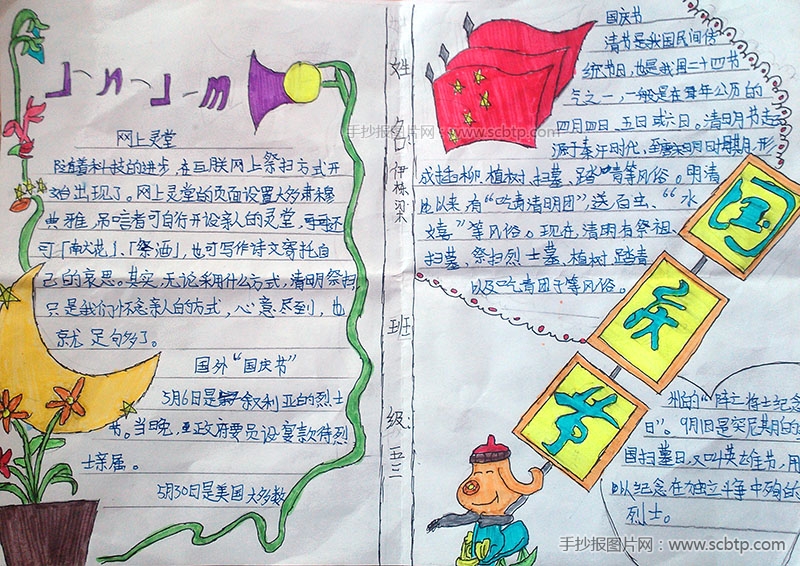 网上灵堂
随着科技的进步，在互联网上祭扫方式开
始出现了。网上灵堂的页面设置大多肃穆
典雅，吊唁者可自行开设亲人的灵堂，还
可「献花」、「祭酒」，也可写作诗文寄托自
己的哀思。其实，无论采用什么方式，清明祭扫
只是我们怀念亲人的方式，心意尽到，也
就足够多了。
国外“国庆节”
5月6日是叙利亚的烈士
节。当晚，政府要员设宴款待烈
士亲属。
5月30日是美国大多数
姓名：伊栋梁
班级：五三
国庆节
清节是我国民间传
统节日，也是我国二十四节
气之一，一般是在每年公历的
四月四日、五日或六日。清明节起
源于秦汉时代，至唐
成赵柳、植树、扫墓、踏等风俗。明清
也以来，有“吃青清明团”，送百虫、“水
嬉”等风俗。现在，清明有祭祖、
扫墓，祭扫烈士墓、植树、踏青
以及吃青团子等风俗。
国庆节
州的“阵亡将士纪念
日”。9月1日是突尼其的
国扫墓日，又叫英雄节，用
以纪念在独立斗争中殉
烈士。
手抄报图片网：www.scbtp.com
手抄报图片网：www.scbtp.com